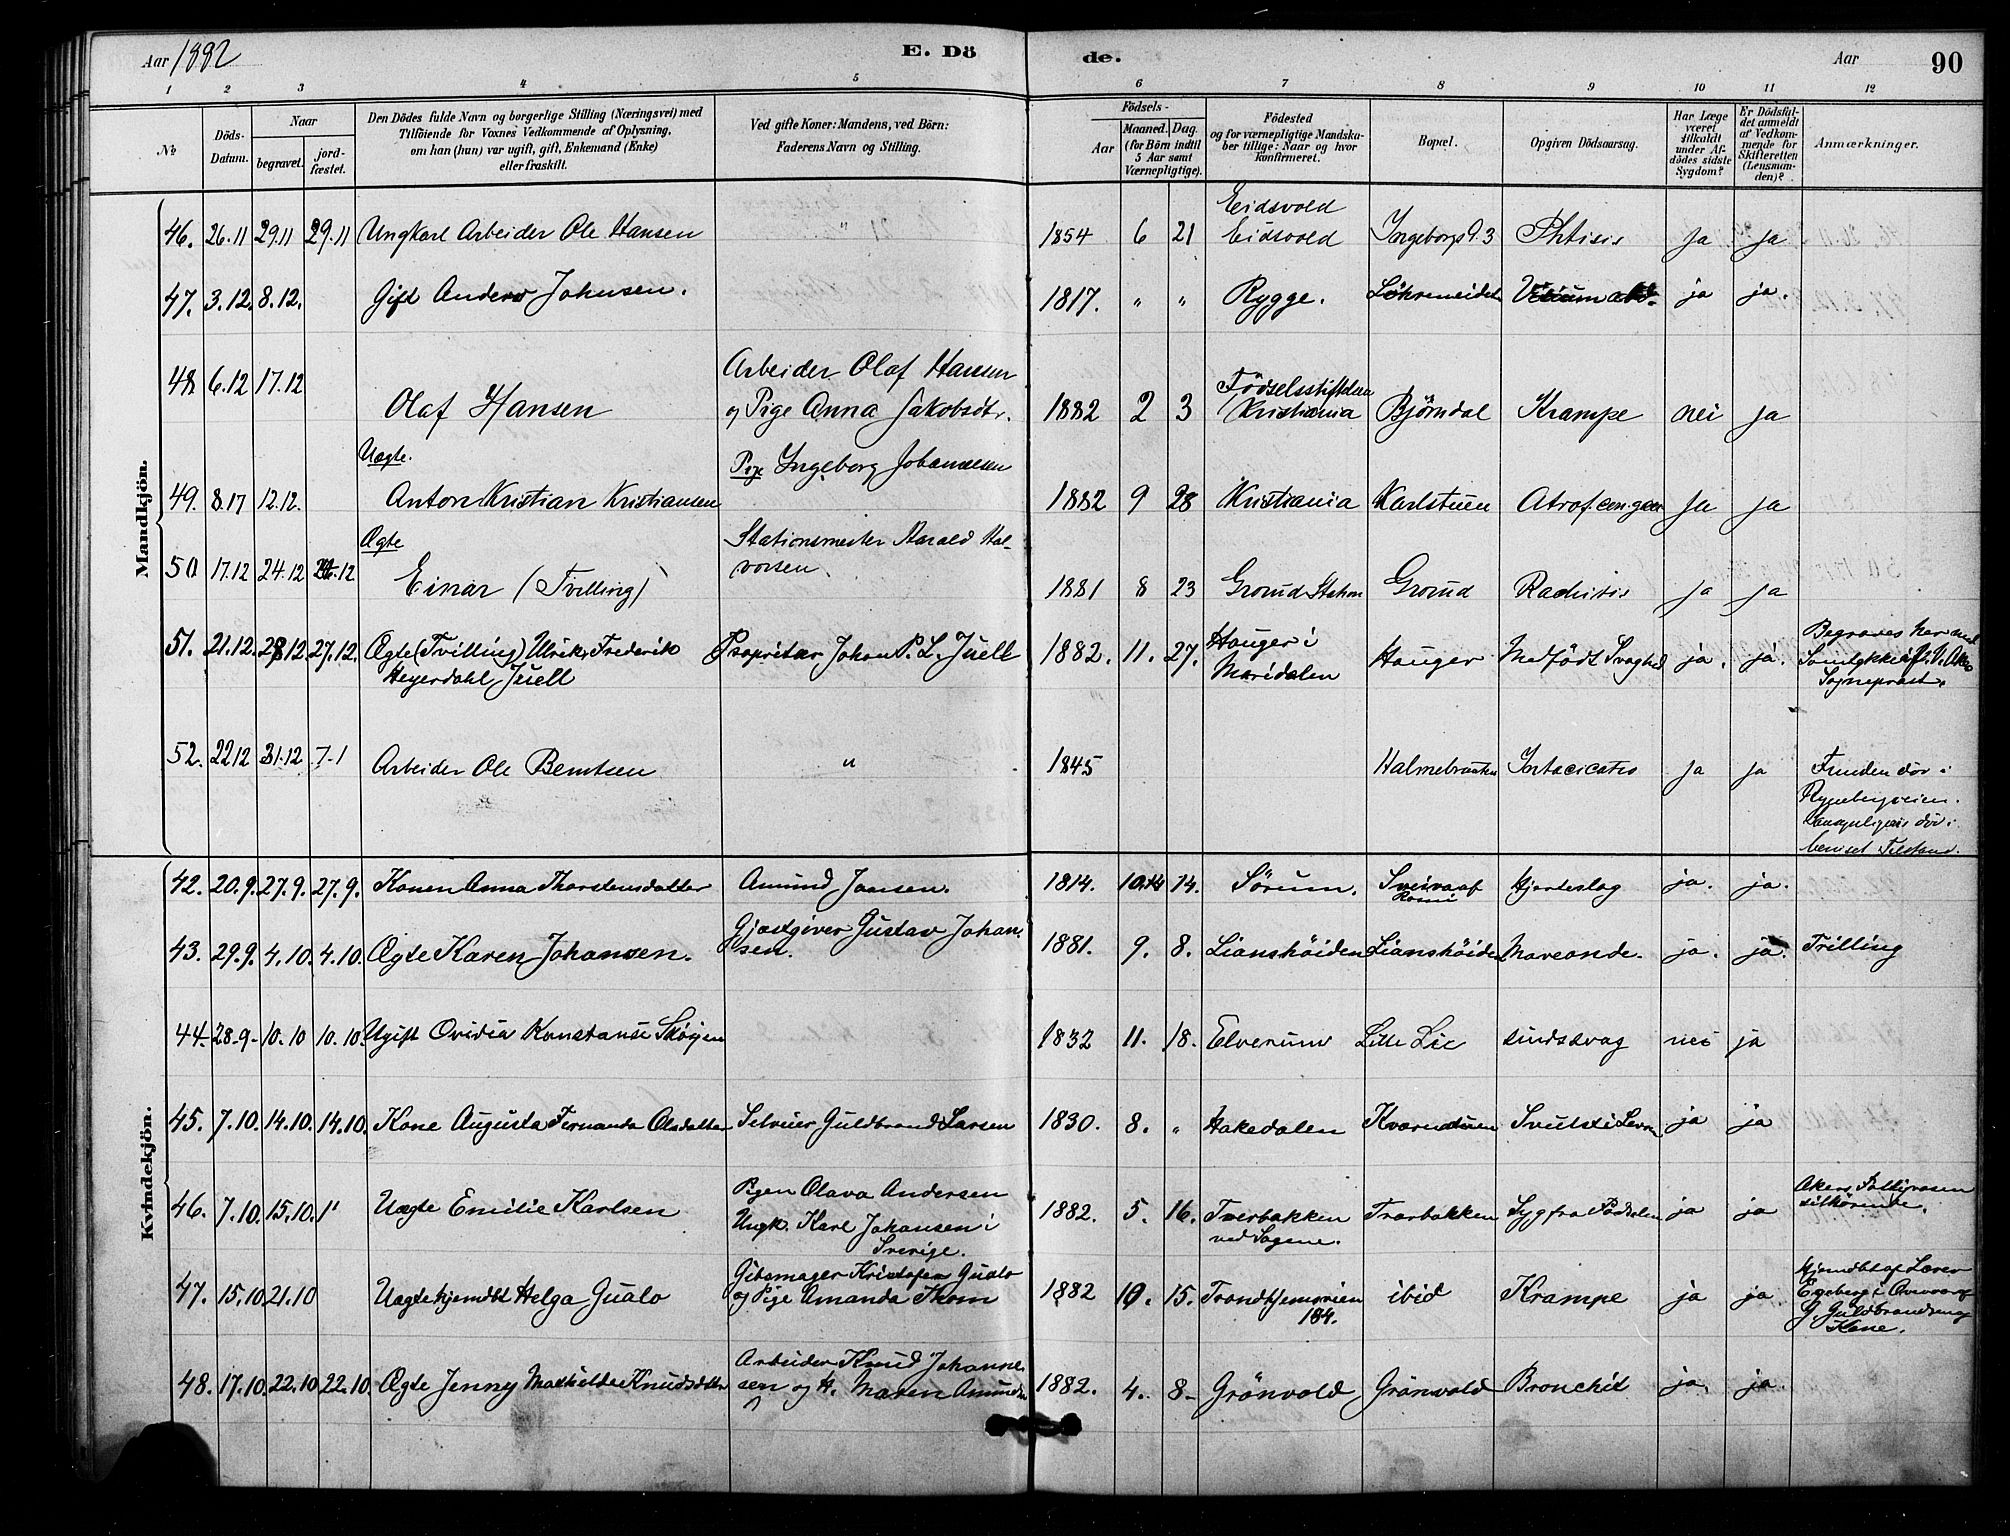 Aar 1882 E. Dö de. Aar 90
1 2 3 4 5 6 7 8 9 10 11 12
№
Döds-Datum.
Naar
begravet.
jord-fæstet.
Den Dödes fulde Navn og borgerlige Stilling (Næringsvei) med
Tilföiende for Voxnes Vedkommende af Oplysning,
om han (hun) var ugift, gift, Enkemand (Enke)
eller fraskilt.
Ved gifte Koner: Mandens, ved Börn:
Faderens Navn og Stilling.
Födsels-
Aar
Maaned. Dag.
(for Börn indtil
5 Aar samt
Værnepligtige).
Födested
og for værnepligtige Mandska-
ber tillige: Naar og hvor
konfirmeret.
Bopæl.
Opgiven Dödsaarsag.
Har Læge
været
tilkaldt
under Af-
dödes sidste
Sygdom?
Er Dödsfal-
det anmeldt
af Vedkom-
mende for
Skifteretten
(Lensman-
den)?
Anmærkninger.
Mandkjön.
Eidsvold
46. 26.11 29.11 29.11 Ungkarl Arbeider Ole Hansen " 1854 6 21 Eidsvold Ingeborgs 9.3 Phtisis ja ja
47. 3.12. 8.12. Gift Anders Johnsen. 1817. " " Rygge. ja ja.
Arbeider Olaf Hansen Födselsstiftelsen
48 6.12 17.12 Olaf Hansen og Pige Anna Jakobsdtr. 1882 2 3 Kristiania Björndal Krampe nei ja
Uægte. Pige Ingeborg Johannesen
49. 8.17 12.12. Anton Kristian Kristiansen 1882 9 28 Kristiania Karlstuen ja ja
Ægte Stationsmester Harald Hal-
vorsen.
50 17.12 24.12 Einar (Tvilling) 1881 8 23 Grorud Station Grorud Rachitis ja ja
51. 21.12. 28.12 27.12. Ægte (Tvilling) Ulrik Frederik Proprietær Johan P. L. Juell 1882. 11. 27. Hauger i Hauger Medfödt Svaghed ja. ja. Begraves her med
Heyerdahl Juell Maridalen Sognepræst.
52. 22 12 31.12 7-1 Arbeider Ole Berntsen " 1845 ja ja Funden död i
död i
Kvindekjön.
42. 20.9. 27.9. 27.9. Konen Anna Thorstensdatter Amund Jansen. 1814. 10. 14. Sörum. Hjerteslag ja. ja.
Gjæstgiver Gustav Johan-
43. 29.9. 4.10. 4.10. Ægte Karen Johansen. sen. 1881. 9. 8. Lianshöiden Lianshöiden ja. ja. Trilling
44. 28-9- 10.10 10.10. Ugift Ovidia Konstanse Skőien 1832 11. 18. Elverum Lille Lie sindssvag nei ja
45. 7.10. 14.10. 14.10. Kone Augusta Fernanda Olsdatter Selveier Guldbrand Larsen 1830. 8. " Hakedalen Kværnstuen Svulst i Leveren ja ja
Pigen Olava Andersen Akers Fattigvæsen
46. 7.10. 15.10. 1" Uægte Emilie Karlsen Ungk. Karl Johansen i 1882. 5. 16. Tverbakken Tverbakken Syg fra Födselen ja ja tilhörende.
Sverige. ved Sagene.
Gibsmager Kristofer Gualo
47. 15.10. 21.10 Uægte hjemdöbt Helga Gualo og Pige Amanda Thom 1882 10. 15. Trondhjemsveien ibid Krampe ja ja Hjemdöbt af Lærer
184. Kone.
Arbeider Knud Johanne-
48. 17.10. 22.10 22.10. Ægte Jenny Mathilde Knudsdtr sen og H. Maren Amunds 1882. 4. 8- Grönvold Grönvold Bronchit ja. ja.